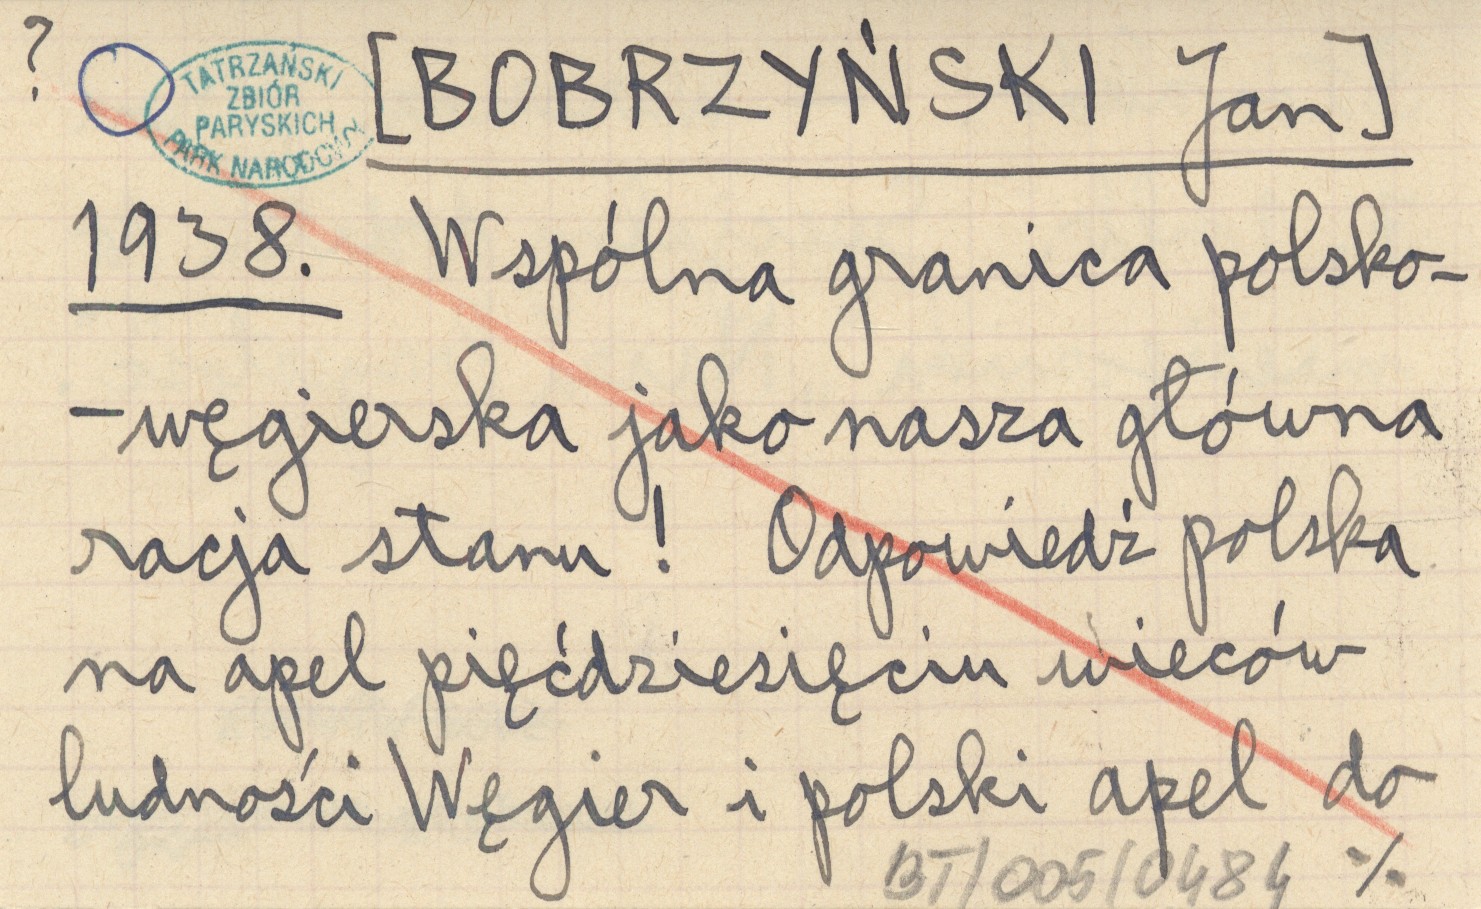 ?
TATRZAŃSKI
ZBIÓR
PARYSKICH
PARK NARODOWY
[BOBRZYŃSKI Jan]
1938. Wspólna granica polsko-
-węgierska jako nasza główna
racja stanu! Odpowiedź polska
na apel pięćdziesięciu wieców
ludności Węgier i polski apel do
BT/005/0484 ·/.